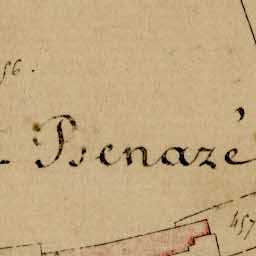 56.
Benazé
457